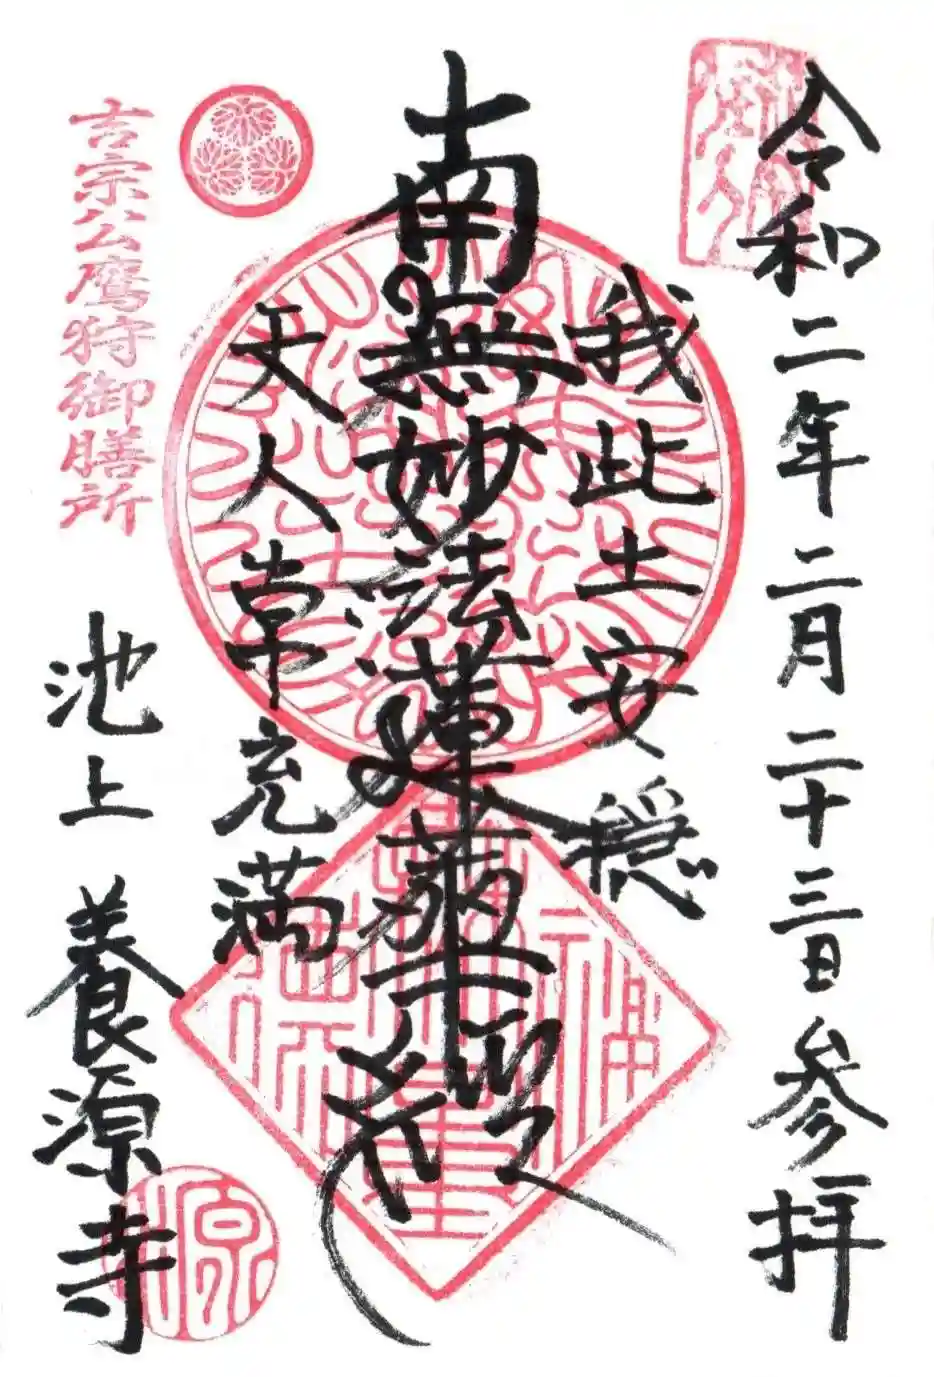 令和二年二月二十三日参拝
我此土安穏
南無妙法蓮華経
天人常充満
吉宗公鷹狩御膳所
池上 養源寺